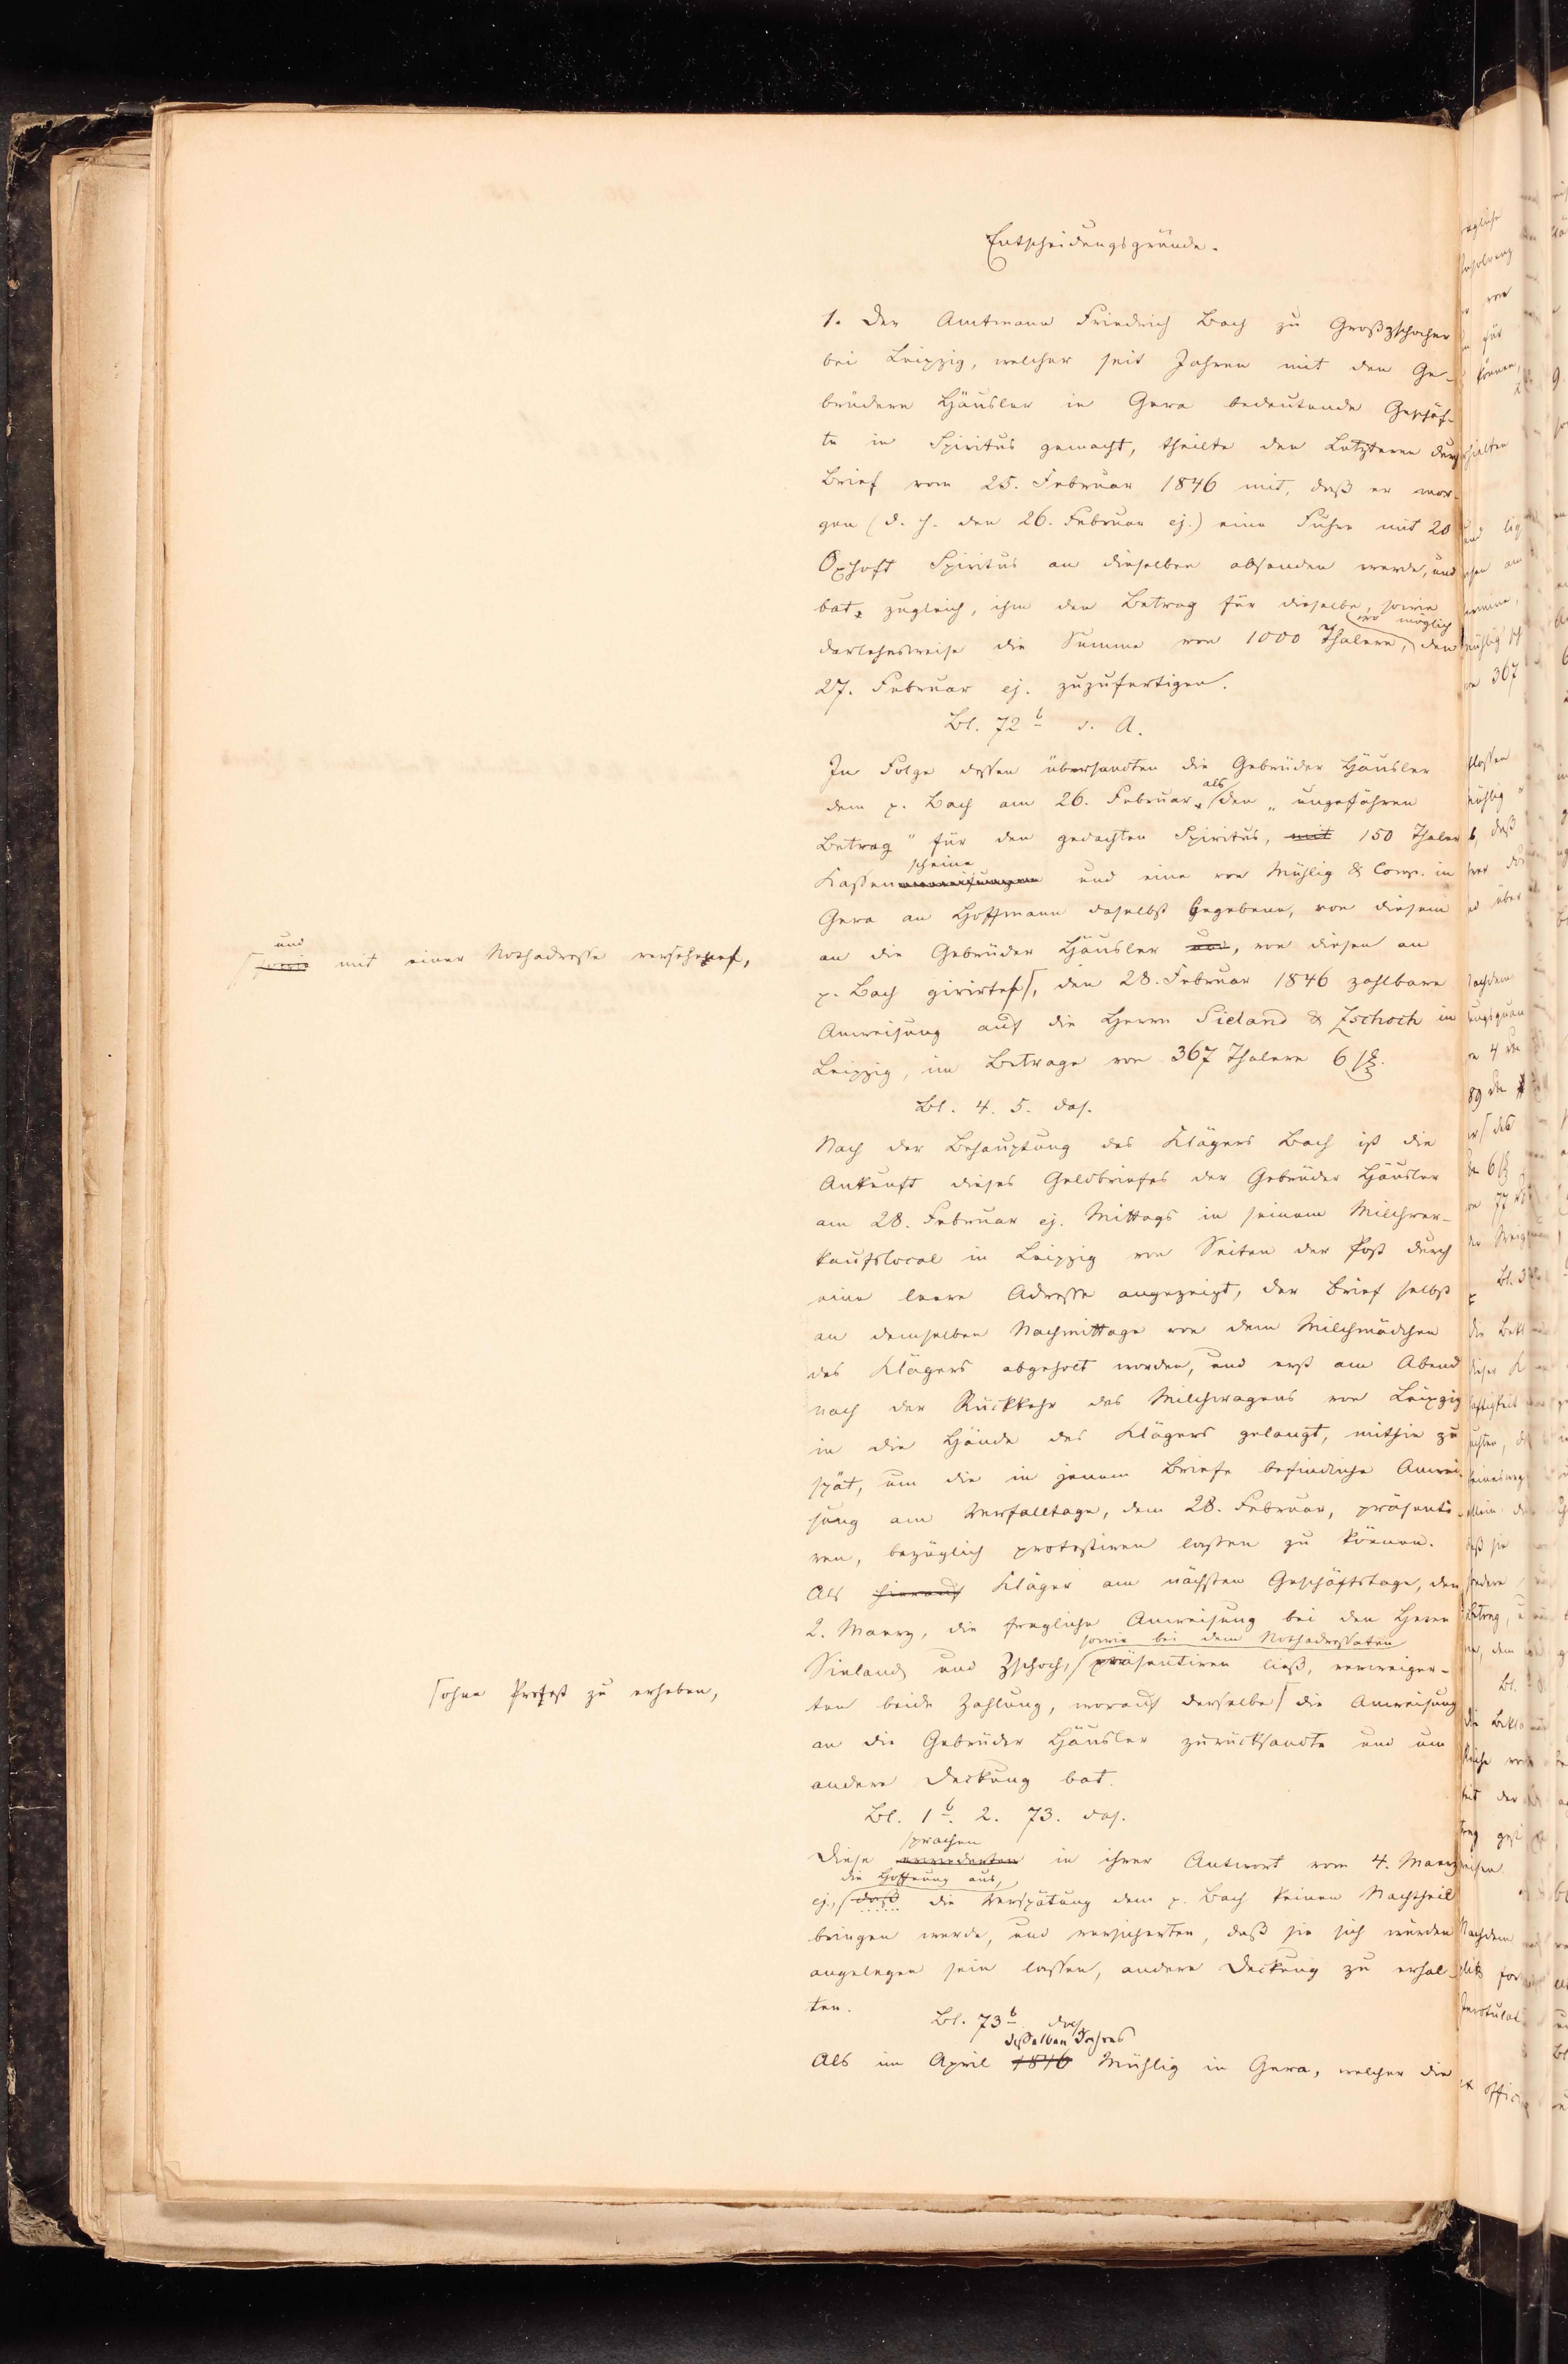 Entscheidungsgründe.
1. Der Amtmann Friedrich Bach zu Großzschocher
bei Leipzig, welcher seit Jahren mit den Ge-
brüdern Häusler in Gera bedeutende Geschäf-
te in Spiritus gemacht, theilte den Letzteren durch
Brief vom 25. Februar 1846 mit, daß er mor-
gen (d. h. den 26. Februar ej.) eine Fuhre mit 20
Oxhoft Spiritus an dieselben absenden werde, und
bat zugleich, ihm den Betrag für dieselbe, sowie
wo möglich
darlehnsweise die Summe von 1000 Thalern, den
27. Februar ej. zuzufertigen.
Bl. 72 b d. A.
In Folge dessen übersandten die Gebrüder Häusler
als
dem p. Bach am 26. Februar, den „ungefähren
Betrag" für den gedachten Spiritus, mit 150 Thaler
scheine
Kassenanweisungen und eine von Mühlig & Comp. in
Gera an Hoffmann daselbst gegebene, von diesem
an die Gebrüder Häusler und, von diesen an
und
sowie mit einer Nothadresse versehene,
p. Bach girirte, den 28. Februar 1846 zahlbare
Anweisung auf die Herrn Sieland & Zschoch in
Leipzig, im Betrage von 367 Thalern 6 Pf.
Bl. 4. 5. das.
Nach der Behauptung des Klägers Bach ist die
Ankunft dieses Geldbriefes der Gebrüder Häusler
am 28. Februar ej. Mittags in seinem Milchver-
kaufslocal in Leipzig von Seiten der Post durch
eine leere Adresse angezeigt, der Brief selbst
an demselben Nachmittage von dem Milchmädchen
des Klägers abgeholt worden, und erst am Abend
nach der Rückkehr des Milchwagens von Leipzig
in die Hände des Klägers gelangt, mithin zu
spät, um die in jenem Briefe befindliche Anwei-
sung am Verfalltage, dem 28. Februar, präsenti-
ren, bezüglich protestiren lassen zu können.
Als hierauf Kläger am nächsten Geschäftstage, den
2. Maerz, die fragliche Anweisung bei den Herrn
sowie bei dem Nothadressaten
Sieland und Zschoch, präsentiren ließ, verweiger-
ten beide Zahlung, worauf derselbe die Anweisung
ohne Protest zu erheben,
an die Gebrüder Häusler zurücksandte und um
andere Deckung bat.
Bl. 1 b. 2. 73. das.
sprachen
Diese erwiederten in ihrer Antwort vom 4. Maerz
die Hoffnung aus,
ej., daß die Verspätung dem p. Bach keinen Nachtheil
bringen werde, und versicherten, daß sie sich würden
angelegen sein lassen, andere Deckung zu erhal-
ten.
Bl. 73 b das.
desselben Jahres
Als im April 1846 Mühlig in Gera, welcher die